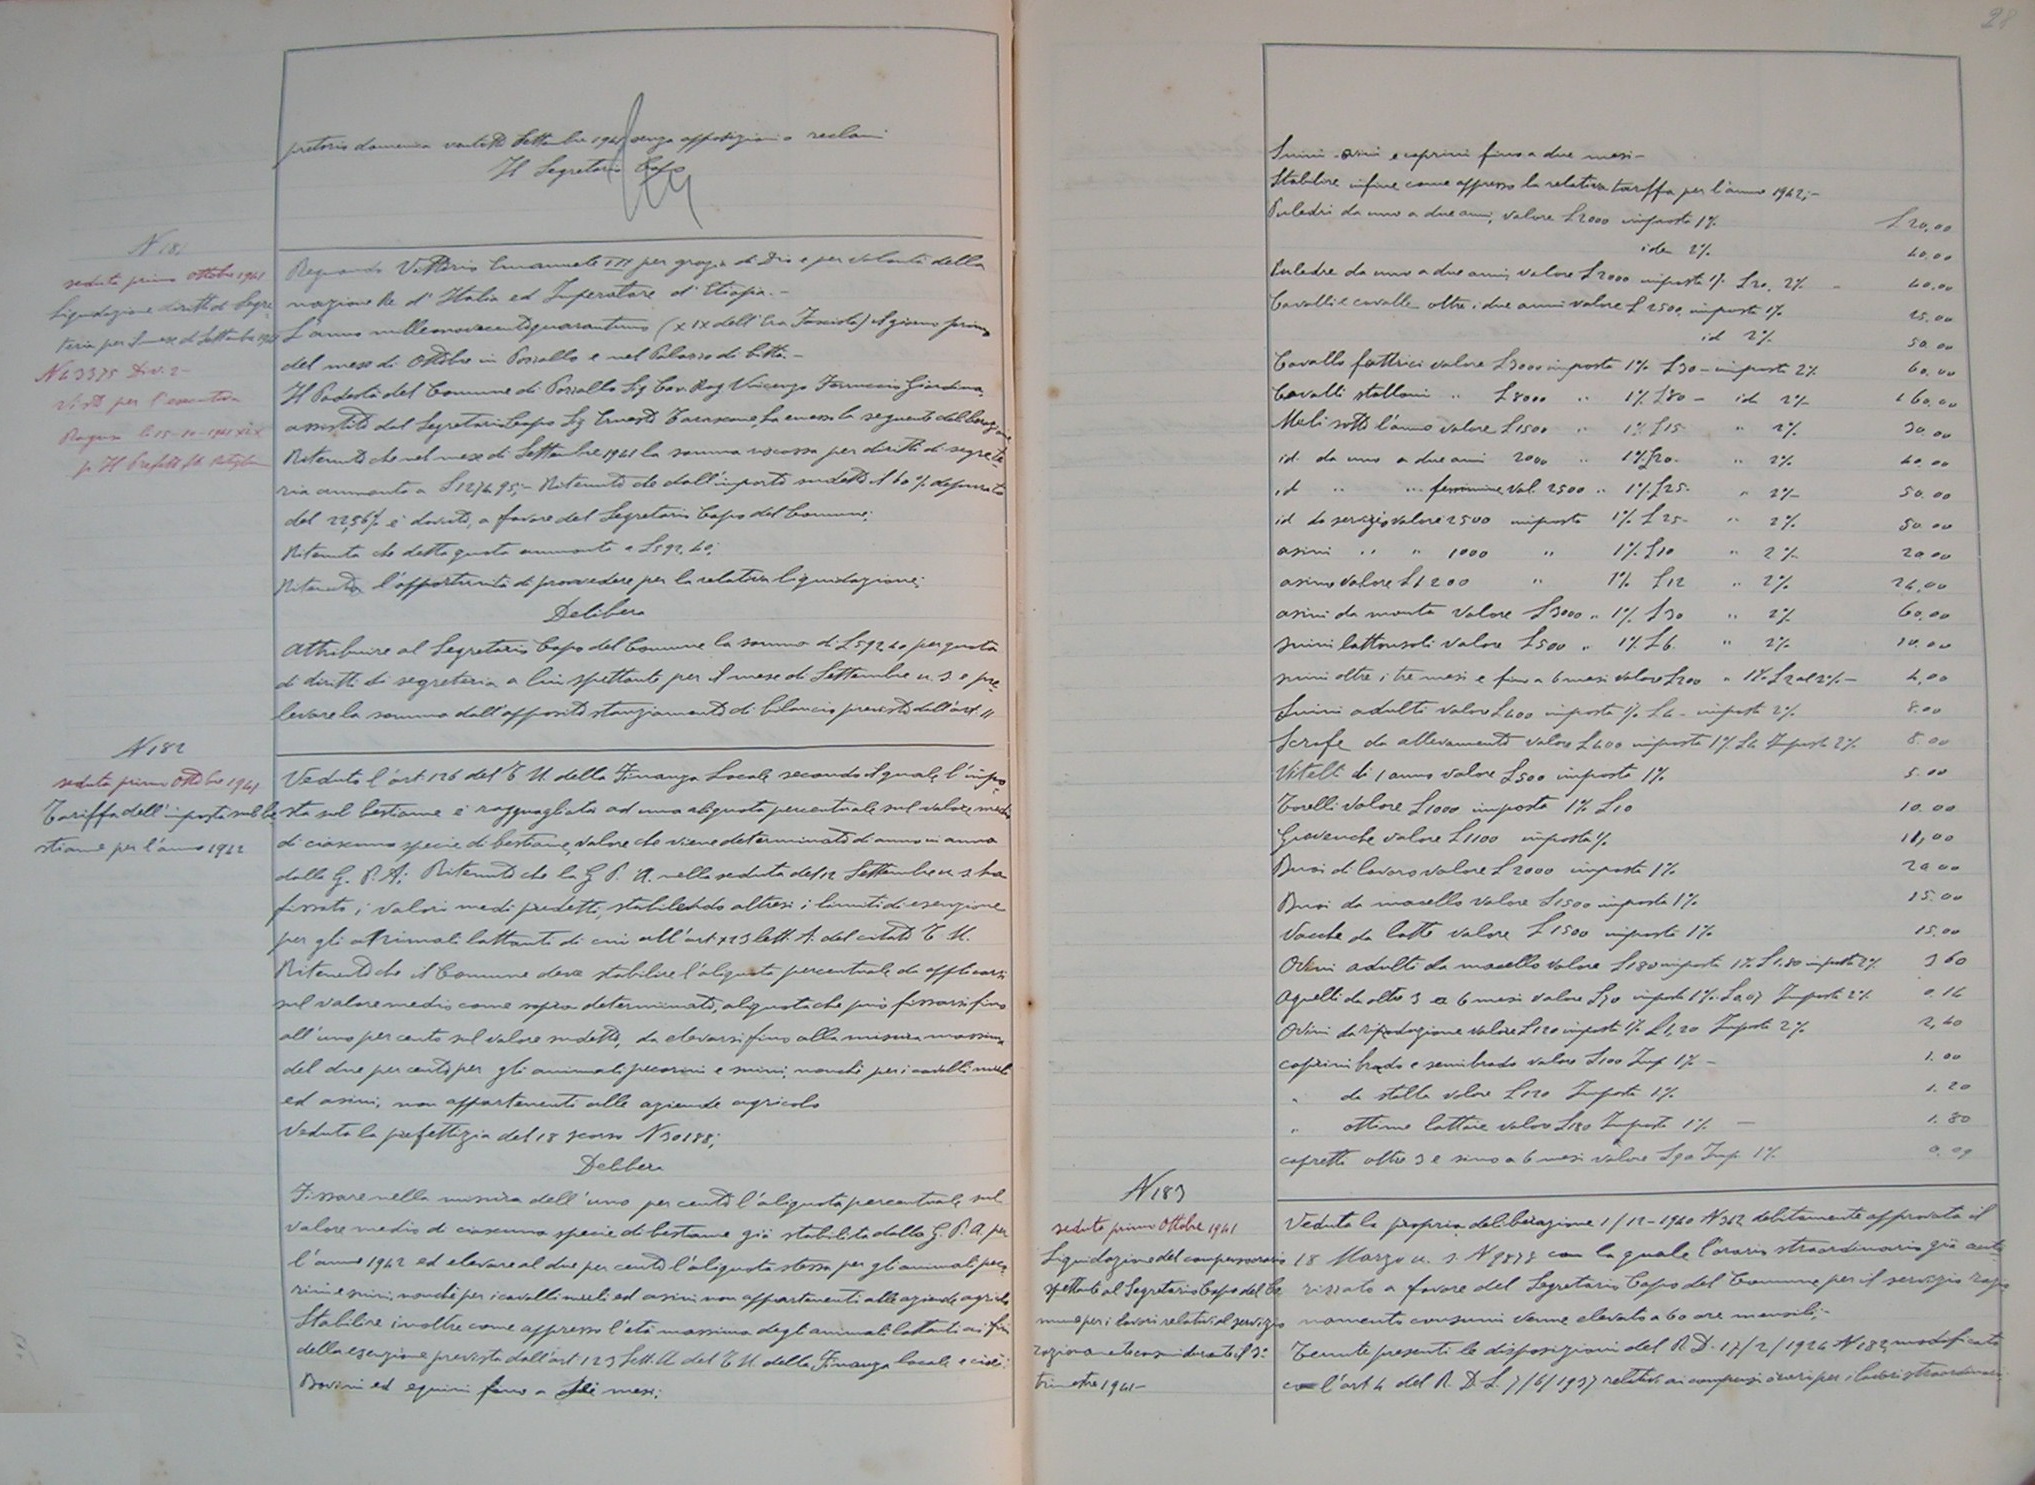 28
pretorio domenica Settembre 1941 senza opposizioni o reclami
Il Segretario Capo
N 181
seduta primo Ottobre 1941
Liquidazione diritti di Segre
teria per il mese di Settembre 1941
N 43375 Div. 2-
Visto per l'esecutività
Ragusa lì 15-10-1941 XIX
p. Il Prefetto
Regnando Vittorio Emanuele III per grazia di Dio e per volontà della
nazione Re d'Italia ed Imperatore d'Etiopia.-
L'anno millenovecentoquarantuno (XIX dell'Era Fascista) il giorno primo
del mese di Ottobre in Pozzallo e nel Palazzo di Città.-
Il Podestà del Comune di Pozzallo Sig Cav. Rag Vincenzo Giardina
assistito dal Segretario Capo Sig Ernesto ha emesso la seguente deliberazione
Ritenuto che nel mese di Settembre 1941 la somma riscossa per diritti di segrete
ria ammonta a L1274,95;- Ritenuto che dall'importo sudetto il 60% depurato
del 22,56% è dovuto, a favore del Segretario Capo del Comune;
Ritenuto che detta quota ammonta a L592,40;
Ritenuta l'opportunità di provvedere per la relativa liquidazione;
Delibera
Attribuire al Segretario Capo del Comune la somma di L592,40 per quota
di diritti di segreteria a lui spettante per il mese di Settembre u. s. e pre
levare la somma dall'apposito stanziamento di bilancio previsto dall'art. 11
N 182
seduta primo Ottobre 1941
Tariffa dell'imposta sul be
stiame per l'anno 1942
Veduto l'art 126 del T. U. della Finanza Locale secondo il quale l'impo
sta sul bestiame è ragguagliata ad una aliquota percentuale sul valore medio
di ciascuna specie di bestiame, valore che viene determinato di anno in anno
dalla G. P. A; Ritenuto che la G P. A. nella seduta del 12 Settembre u. s. ha
fissato i valori medi predetti, stabilendo altresì i limiti di esenzione
per gli animali lattanti di cui all'art 123 lett. A. del citato T. U.
Ritenuto che il Comune deve stabilire l'aliquota percentuale da applicarsi
sul valore medio come sopra determinato, aliquota che può fissarsi fino
all'uno per cento sul valore sudetto, da elevarsi fino alla misura massima
del due per cento per gli animali pecorini e suini, nonchè per i cavalli muli
ed asini, non appartenenti alle aziende agricole
Veduta la prefettizia del 18 scorso N 30188;
Delibera
Fissare nella misura dell'uno per cento l'aliquota percentuale sul
valore medio di ciascuna specie di bestiame già stabilita dalla G. P. A. per
l'anno 1942 ed elevare al due per cento l'aliquota stessa per gli animali peco
rini e suini, nonchè per i cavalli muli ed asini non appartenenti alle aziende agricole
Stabilire inoltre come appresso l'età massima degli animali lattanti ai fini
della esenzione prevista dall'art 123 Lett. A del T U della Finanza locale e cioè:
Bovini ed equini fino a sei mesi;
Suini - ovini e caprini fino a due mesi-
Stabilire infine come appresso la relativa tariffa per l'anno 1942;-
Puledri da uno a due anni, valore L2000 imposta 1% L20,00
idem 2% 40,00
Puledre da uno a due anni valore L2000 imposta 1% L20. 2% - 40,00
Cavalli e cavalle oltre i due anni valore L 2500 imposta 1% 25,00
id 2% 50,00
Cavalle fattrici valore L3000 imposta 1% L30 - imposta 2% 60,00
Cavalli stalloni " L8000 " 1% L80 - id 2% 160,00
Muli sotto l'anno valore L1500 " 1% L15 " 2% 30,00
id. da uno a due anni 2000 " 1% L20. " 2% 40,00
id " " femmine val. 2500 " 1% L25. " 2% 50.00
id da servizio valore 2500 imposta 1% L 25- " 2% 50.00
asini " " 1000 " 1% L10 " 2% 20.00
asino valore L1200 " 1% L12 " 2% 24,00
asini da monta valore L3000 " 1% L30 " 2% 60,00
suini lattonzoli valore L500 " 1% L6. " 2% 10.00
suini oltre i tre mesi e fino a 6 mesi valore L200 " 1% L2 al 2% - 4,00
Suini adulti valore L400 imposta 1% L4 - imposta 2% 8.00
Scrofe da allevamento valore L400 imposta 1% L4 Imposta 2% 8.00
Vitelli di 1 anno valore L500 imposta 1% 5.00
Torelli valore L1000 imposta 1% L10 10.00
Giovenche valore L1100 imposta 1% 11,00
Buoi di lavoro valore L 2000 imposta 1% 20.00
Buoi da macello valore L1500 imposta 1% 15.00
Vacche da latte valore L 1500 imposta 1% 15.00
Ovini adulti da macello valore L180 imposta 1% L1.80 imposta 2% 3 60
Agnelli da oltre 3 a 6 mesi valore L70 imposta 1% L0,07 Imposta 2% 0.14
Ovini da riproduzione valore L120 imposta 1% L1,20 Imposta 2% 2,40
caprini brado e semibrado valore L100 Imp 1% - 1.00
" da stalla valore L120 Imposta 1% 1.20
" ottime lattare valore L180 Imposta 1% - 1.80
capretti oltre 3 e sino a 6 mesi valore L90 Imp 1% 0.09
N 183
seduta primo Ottobre 1941
Liquidazione del compenso orario
spettante al Segretario Capo del Co
mune per i lavori relativi al servizio
razionamento consumi durante il 3°
trimestre 1941-
Veduta la propria deliberazione 1/12-1940 N 362 debitamente approvata il
18 Marzo u. s. N 9873 con la quale l'orario straordinario già auto
rizzato a favore del Segretario Capo del Comune per il servizio razio
namento consumi venne elevato a 60 ore mensili;-
Tenute presenti le disposizioni del R. D. 17/2/1924 N 182, modificato
con l'art 4 del R. D. L. 7/6/1937 relativi ai compensi orari per i lavori straordinari